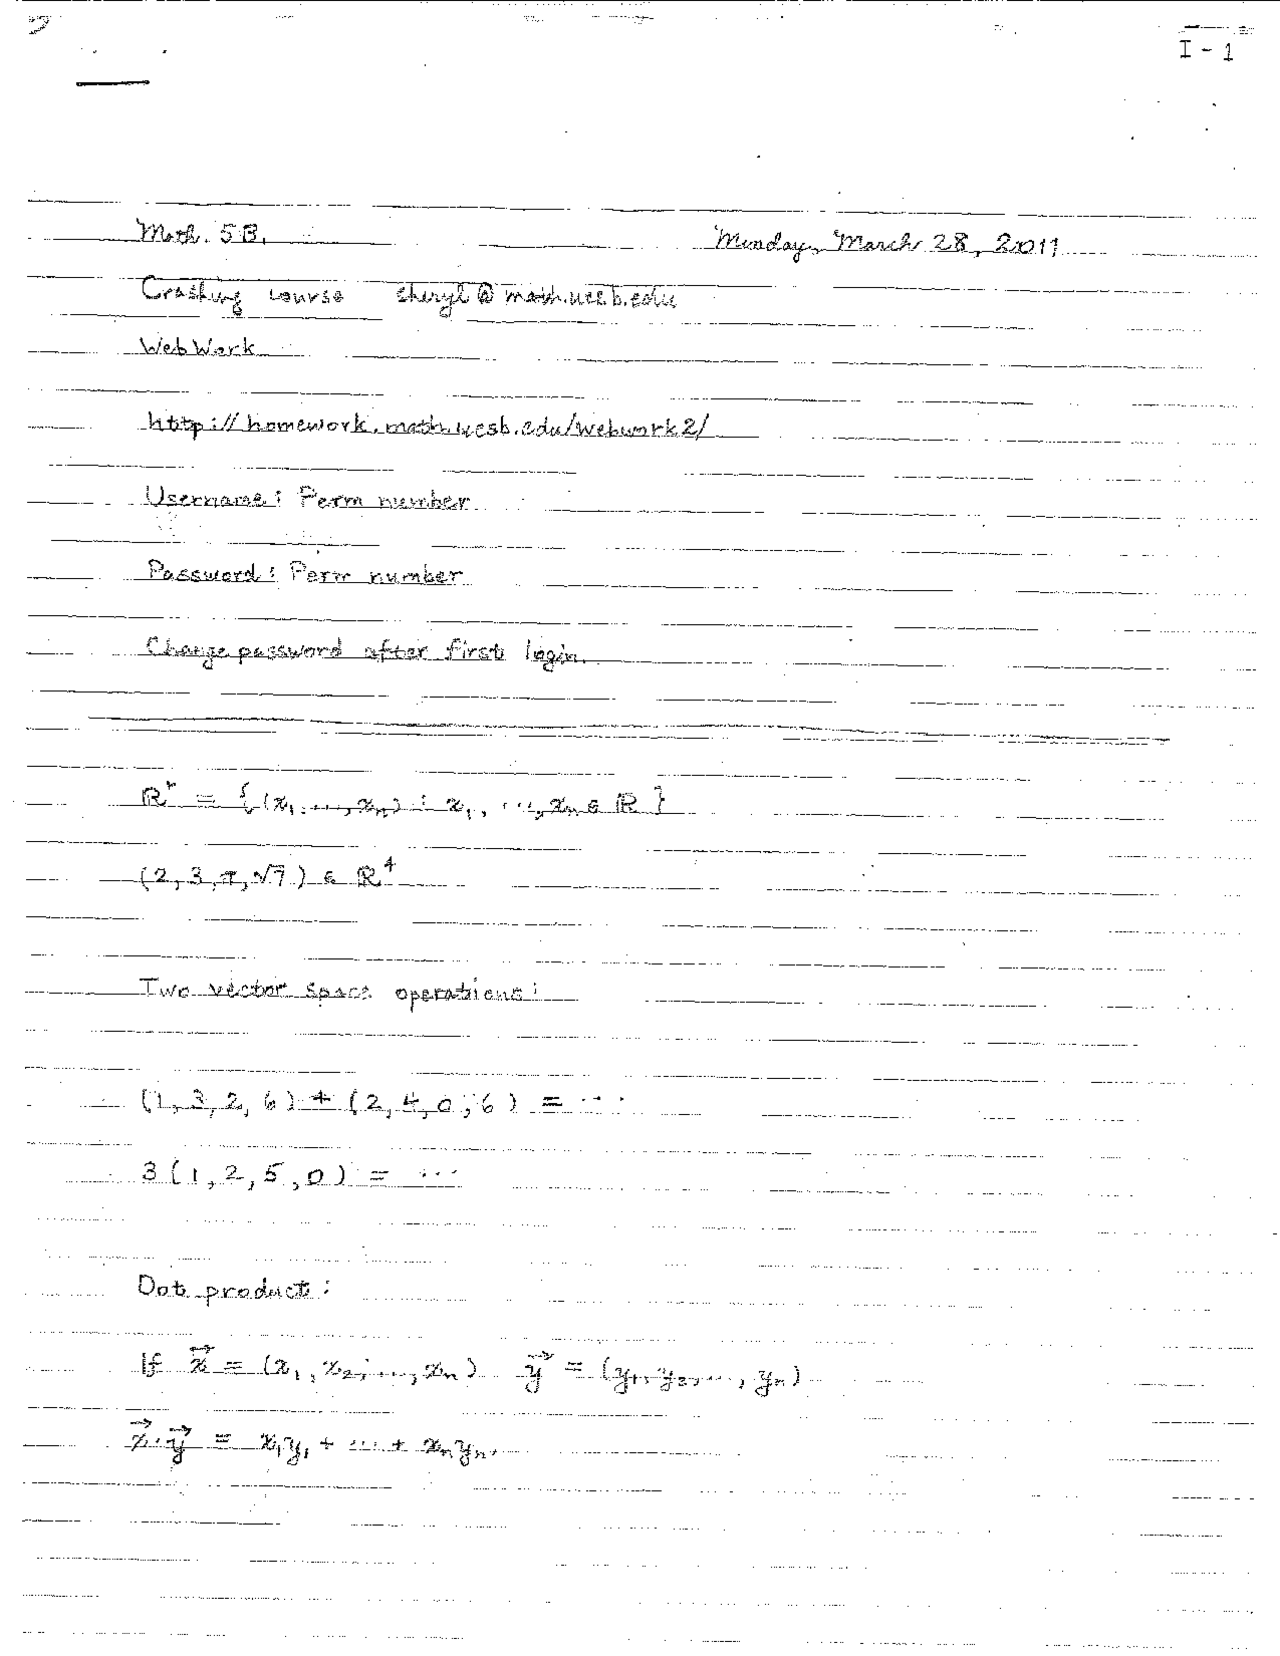 I - 1
Math 5B.
Monday, March 28, 2011
Crashing course cheryl@math.ucsb.edu
WebWork
http://homework.math.ucsb.edu/webwork2/
Username: Perm number
Password: Perm number
Change password after first login.
ℝⁿ = {(x₁, ..., xₙ) : x₁, ..., xₙ ∈ ℝ}
(2, 3, π, √7) ∈ ℝ⁴
Two vector space operations:
(1, 3, 2, 6) + (2, 4, 0, 6) = ...
3(1, 2, 5, 0) = ...
Dot product:
If x⃗ = (x₁, x₂, ..., xₙ) y⃗ = (y₁, y₂, ..., yₙ)
x⃗·y⃗ = x₁y₁ + ... + xₙyₙ.